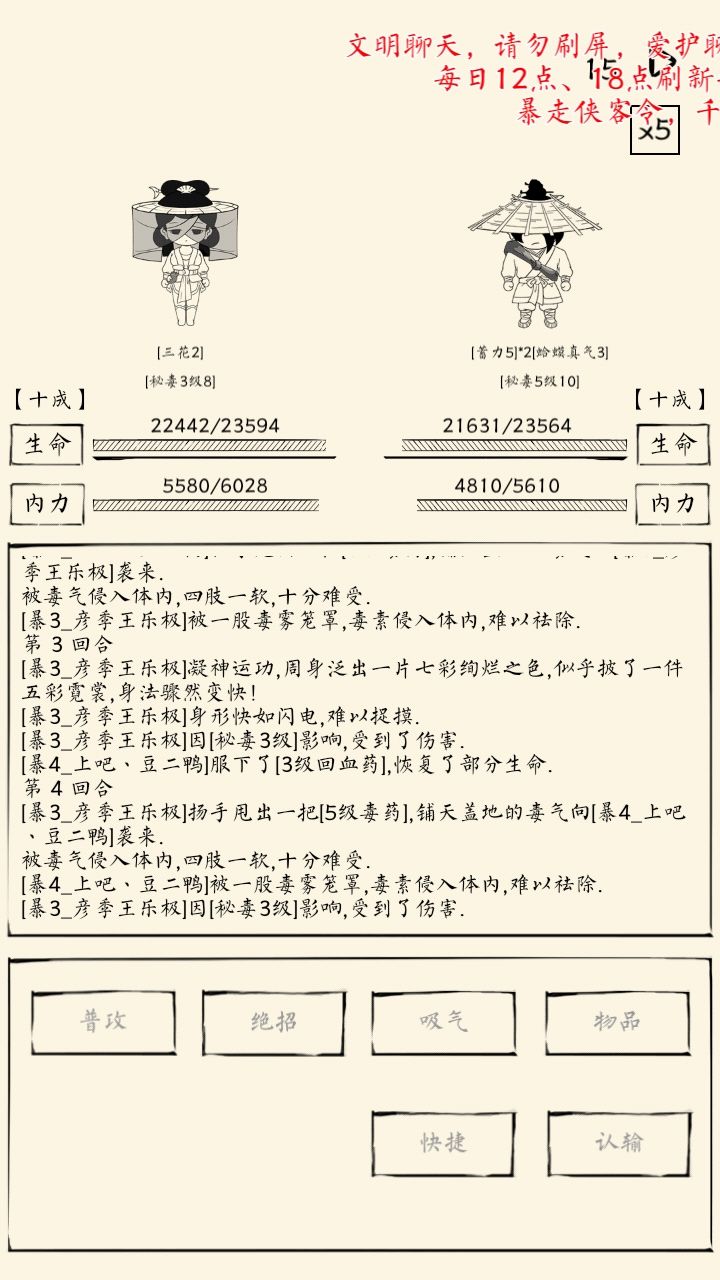 文明聊天，请勿刷屏，爱护聊
15
每日12点、18点刷新
暴走侠客令，千
x5
[三花2]
[蓄力5]*2[蛤蟆真气3]
[秘毒3级8]
[秘毒5级10]
【十成】
【十成】
22442/23594
21631/23564
生命
生命
5580/6028
4810/5610
内力
内力
季王乐极]袭来.
被毒气侵入体内,四肢一软,十分难受.
[暴3_彦季王乐极]被一股毒雾笼罩,毒素侵入体内,难以祛除.
第 3 回合
[暴3_彦季王乐极]凝神运功,周身泛出一片七彩绚烂之色,似乎披了一件
五彩霓裳,身法骤然变快!
[暴3_彦季王乐极]身形快如闪电,难以捉摸.
[暴3_彦季王乐极]因[秘毒3级]影响,受到了伤害.
[暴4_上吧丶豆二鸭]服下了[3级回血药],恢复了部分生命.
第 4 回合
[暴3_彦季王乐极]扬手甩出一把[5级毒药],铺天盖地的毒气向[暴4_上吧
丶豆二鸭]袭来.
被毒气侵入体内,四肢一软,十分难受.
[暴4_上吧丶豆二鸭]被一股毒雾笼罩,毒素侵入体内,难以祛除.
[暴3_彦季王乐极]因[秘毒3级]影响,受到了伤害.
普攻
绝招
吸气
物品
快捷
认输